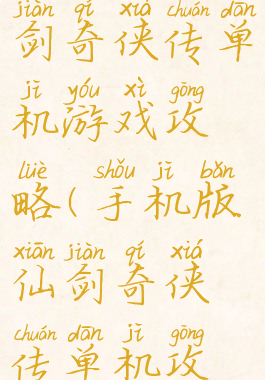 jiàn qí xiá chuán dān
剑奇侠传单
jī yóu xì gōng
机游戏攻
lüè shǒu jī bǎn
略(手机版
xiān jiàn qí xiá
仙剑奇侠
chuán dān jī gōng
传单机攻